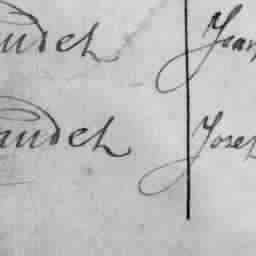 udet Jean
audet Josep